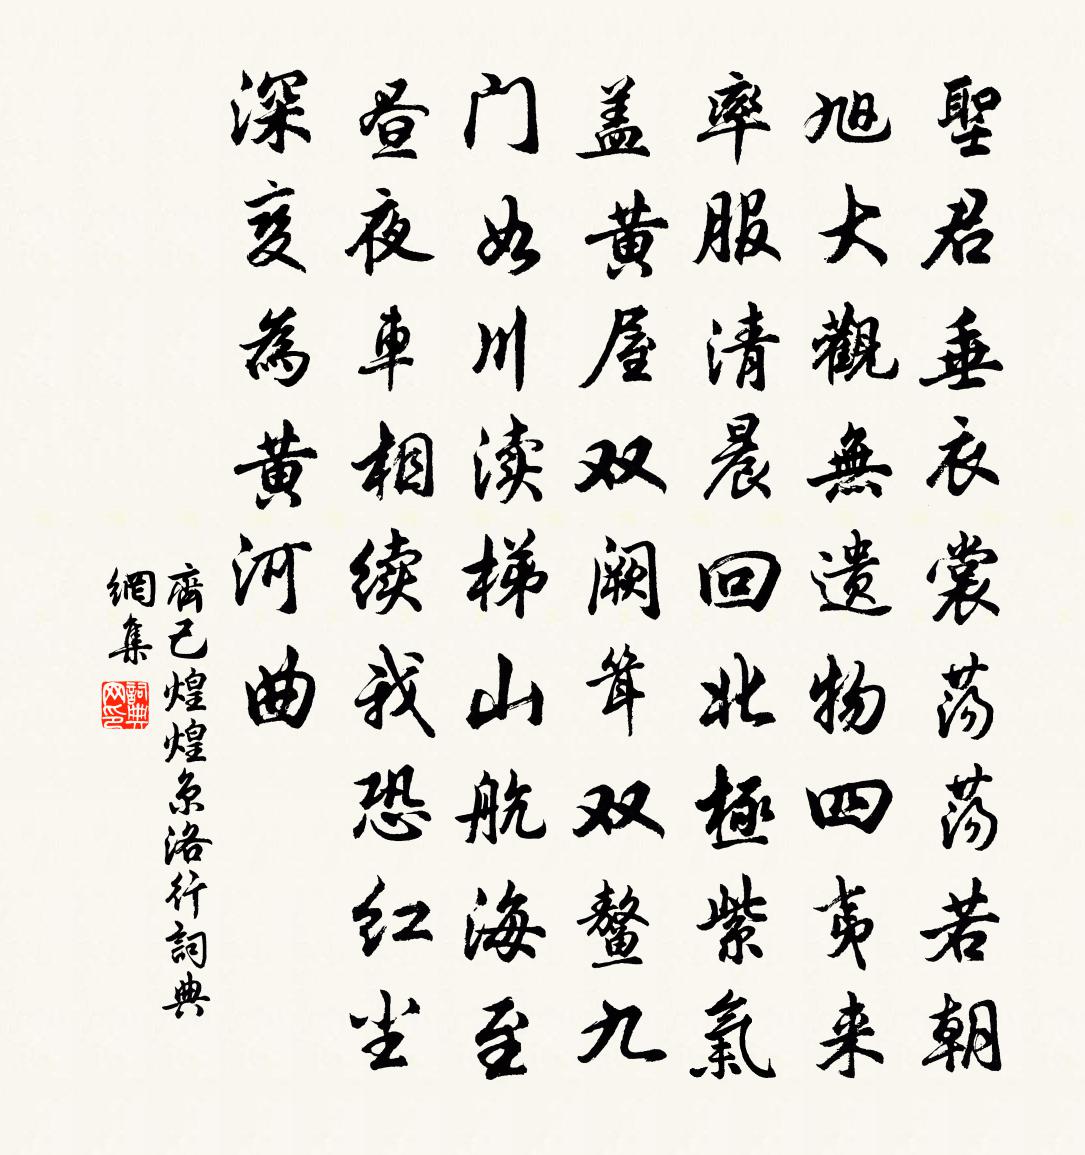 聖君垂衣裳荡荡若朝
旭大觀無遗物四夷来
率服清晨回北極紫氣
盖黄屋双阙耸双鳌九
门如川渎梯山航海至
昼夜車相续我恐红尘
深变為黄河曲
齊己煌煌京洛行詞典
網集
詞典网印